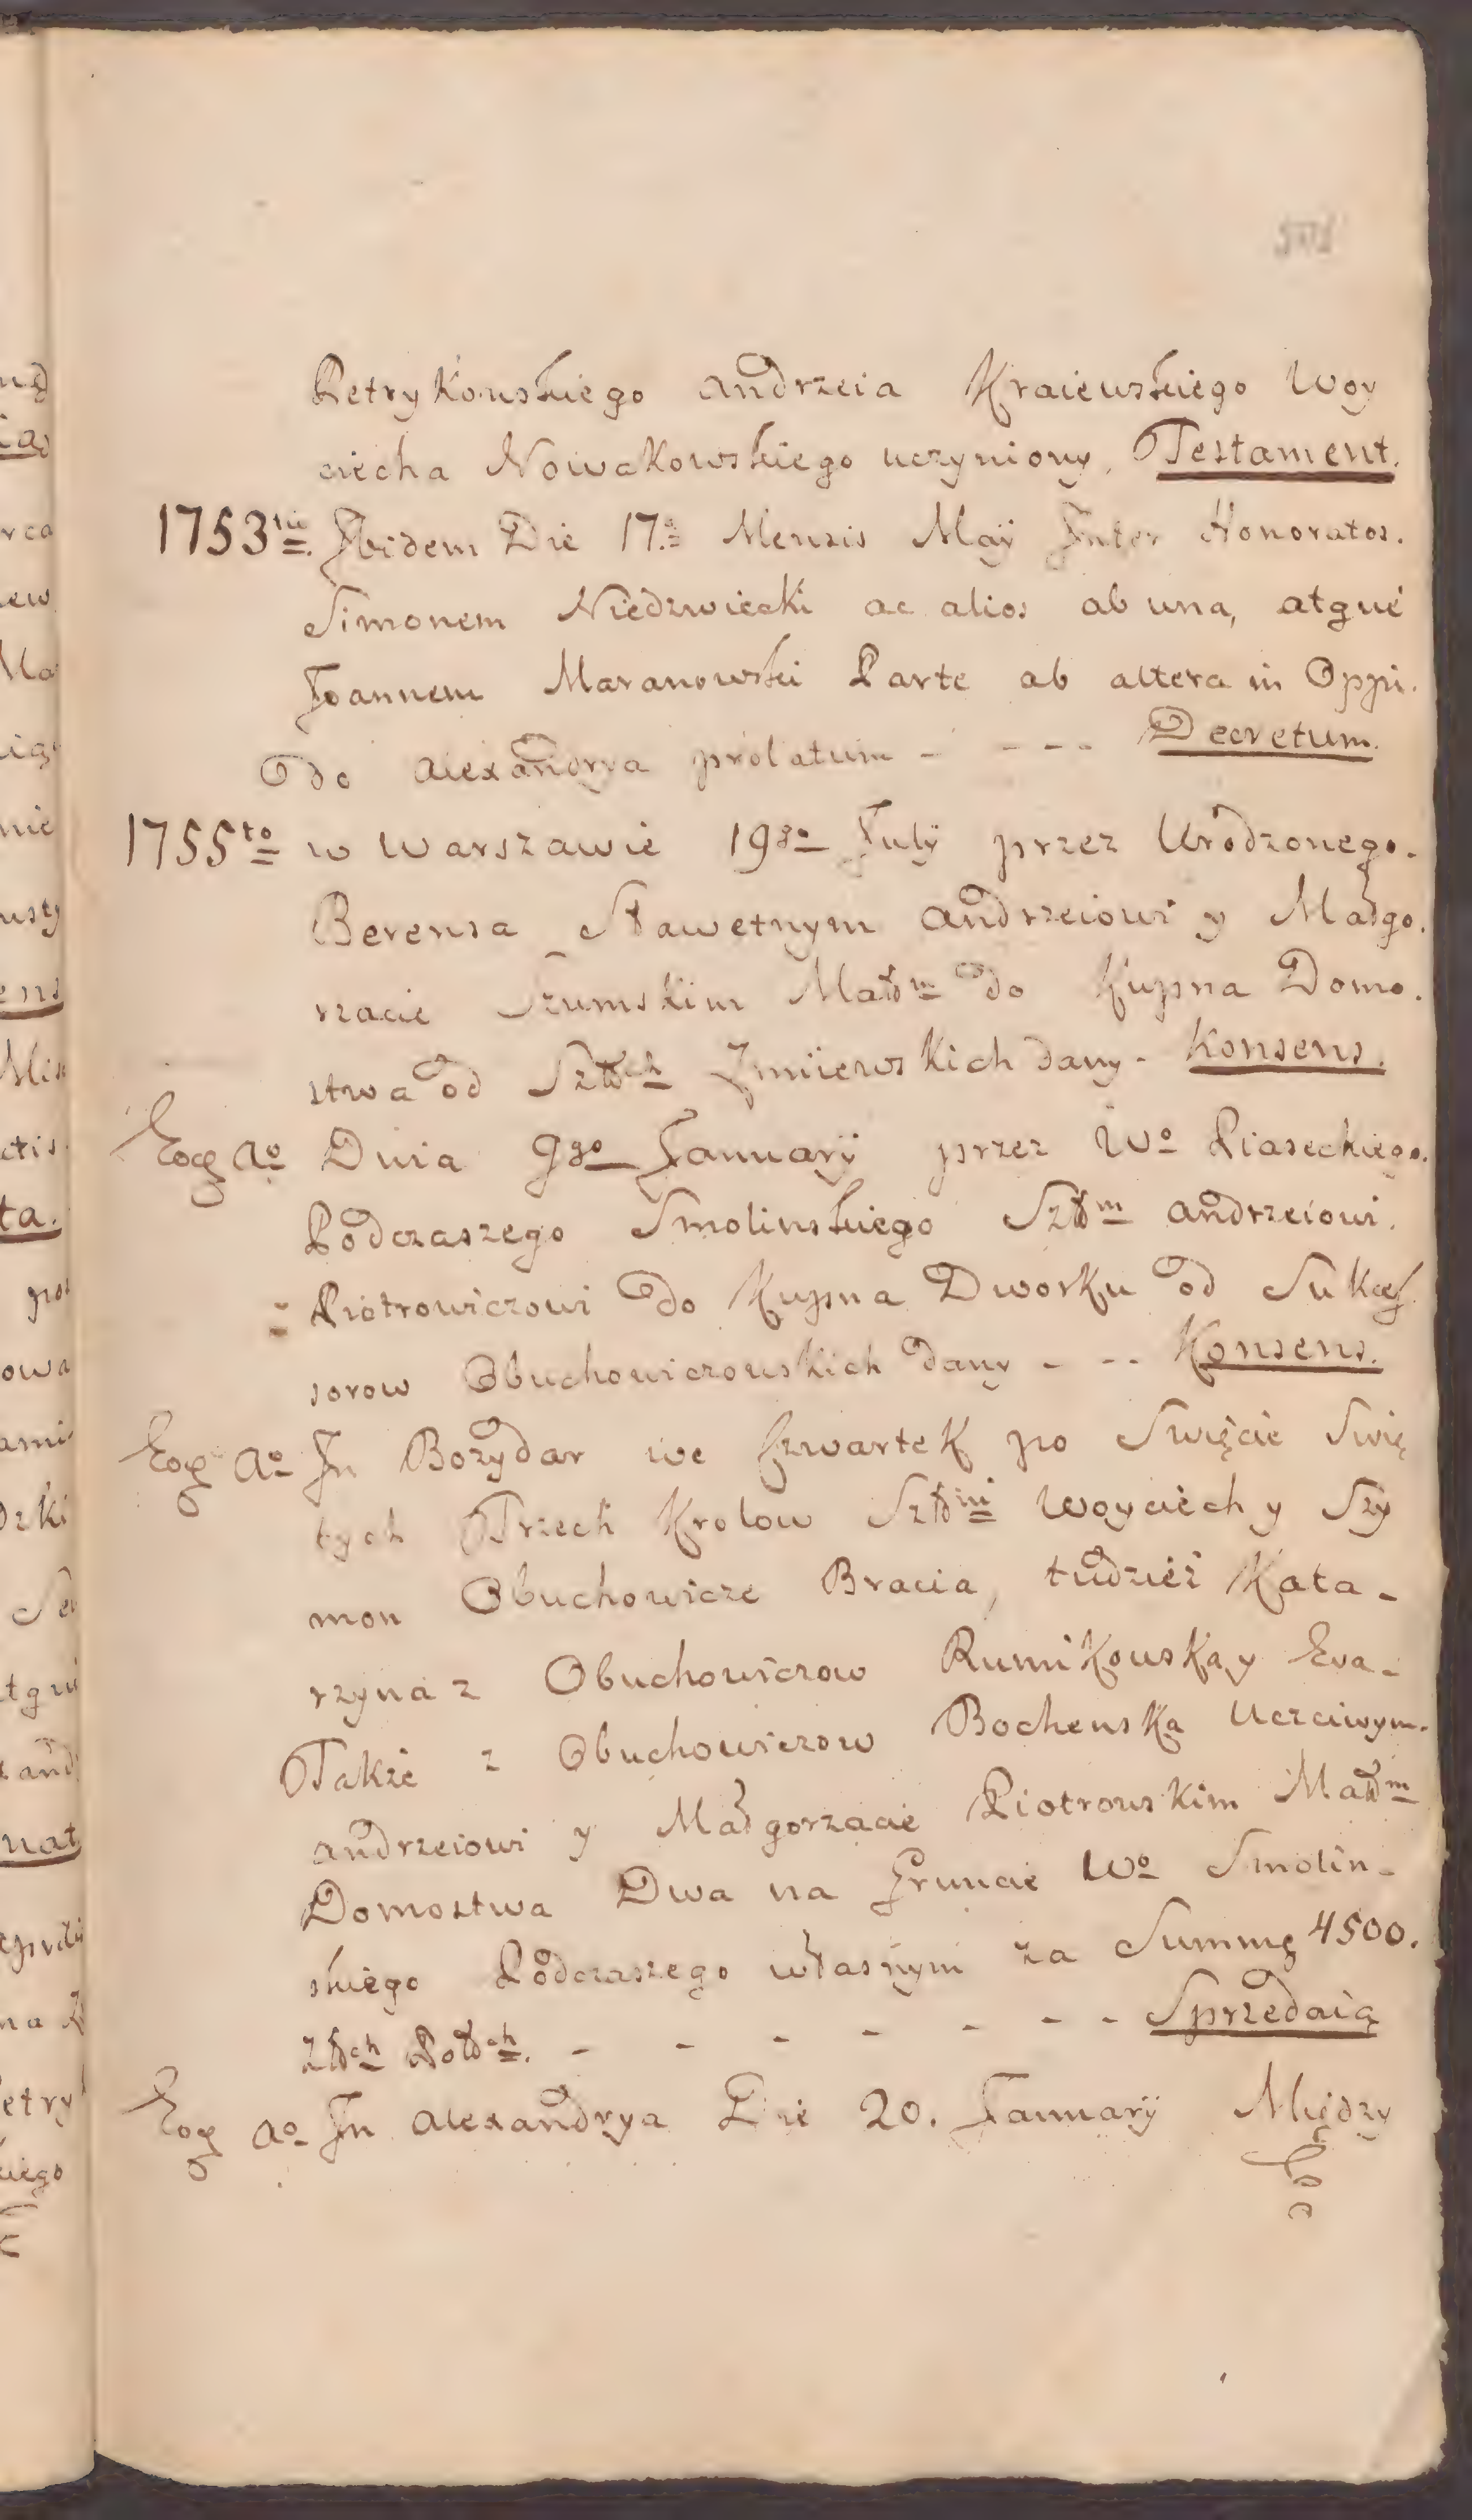 Petrykowskiego Andrzeia Kraiewskiego Woy
ciecha Nowakowskiego uczyniony. Testament.
1753tio. Ibidem Die 17.a Mensis Maÿ Inter Honoratos.
Simonem Niedzwiecki ac alios ab una, atque
Joannem Maranowski Parte ab altera in Oppi.
do Alexandrya prolatum - - - - Decretum.
1755to w Warszawie 19go Julÿ przez Urodzonego.
Berensa Sławetnym Andrzeiowi y Małgo.
rzacie Szumskim Małłm do Kupna Domo.
stwa od Szłłch Zmiiewskich dany - Konsens.
Eoq Ao Dnia 9go Januarÿ przez Wo Piaseckiego.
Podczaszego Smolinskiego Szłłm Andrzeiowi.
Piotrowiczowi do Kupna Dworku od Sukces
sorow Obuchowiczowskich dany - - - Konsens.
Eoq Ao In Bozydar we Czwartek po Swięcie Swię
tych Trzech Krolow Szłłni Woyciech y Szy
mon Obuchowicze Bracia, tudzież Kata -
rzyna z Obuchowiczow Rumikowska y Eva -
Takze z Obuchowiczow Bochenska Uczciwym.
Andrzeiowi y Małgorzacie Piotrowskim Małłm
Domostwa Dwa na Gruncie Wo Smolin -
skiego Podczaszego własnym za Summę 4500.
Złłch Polłch. - - - - - - - Sprzedaią
Eoq Ao In Alexandrya Die 20. Januarÿ Między